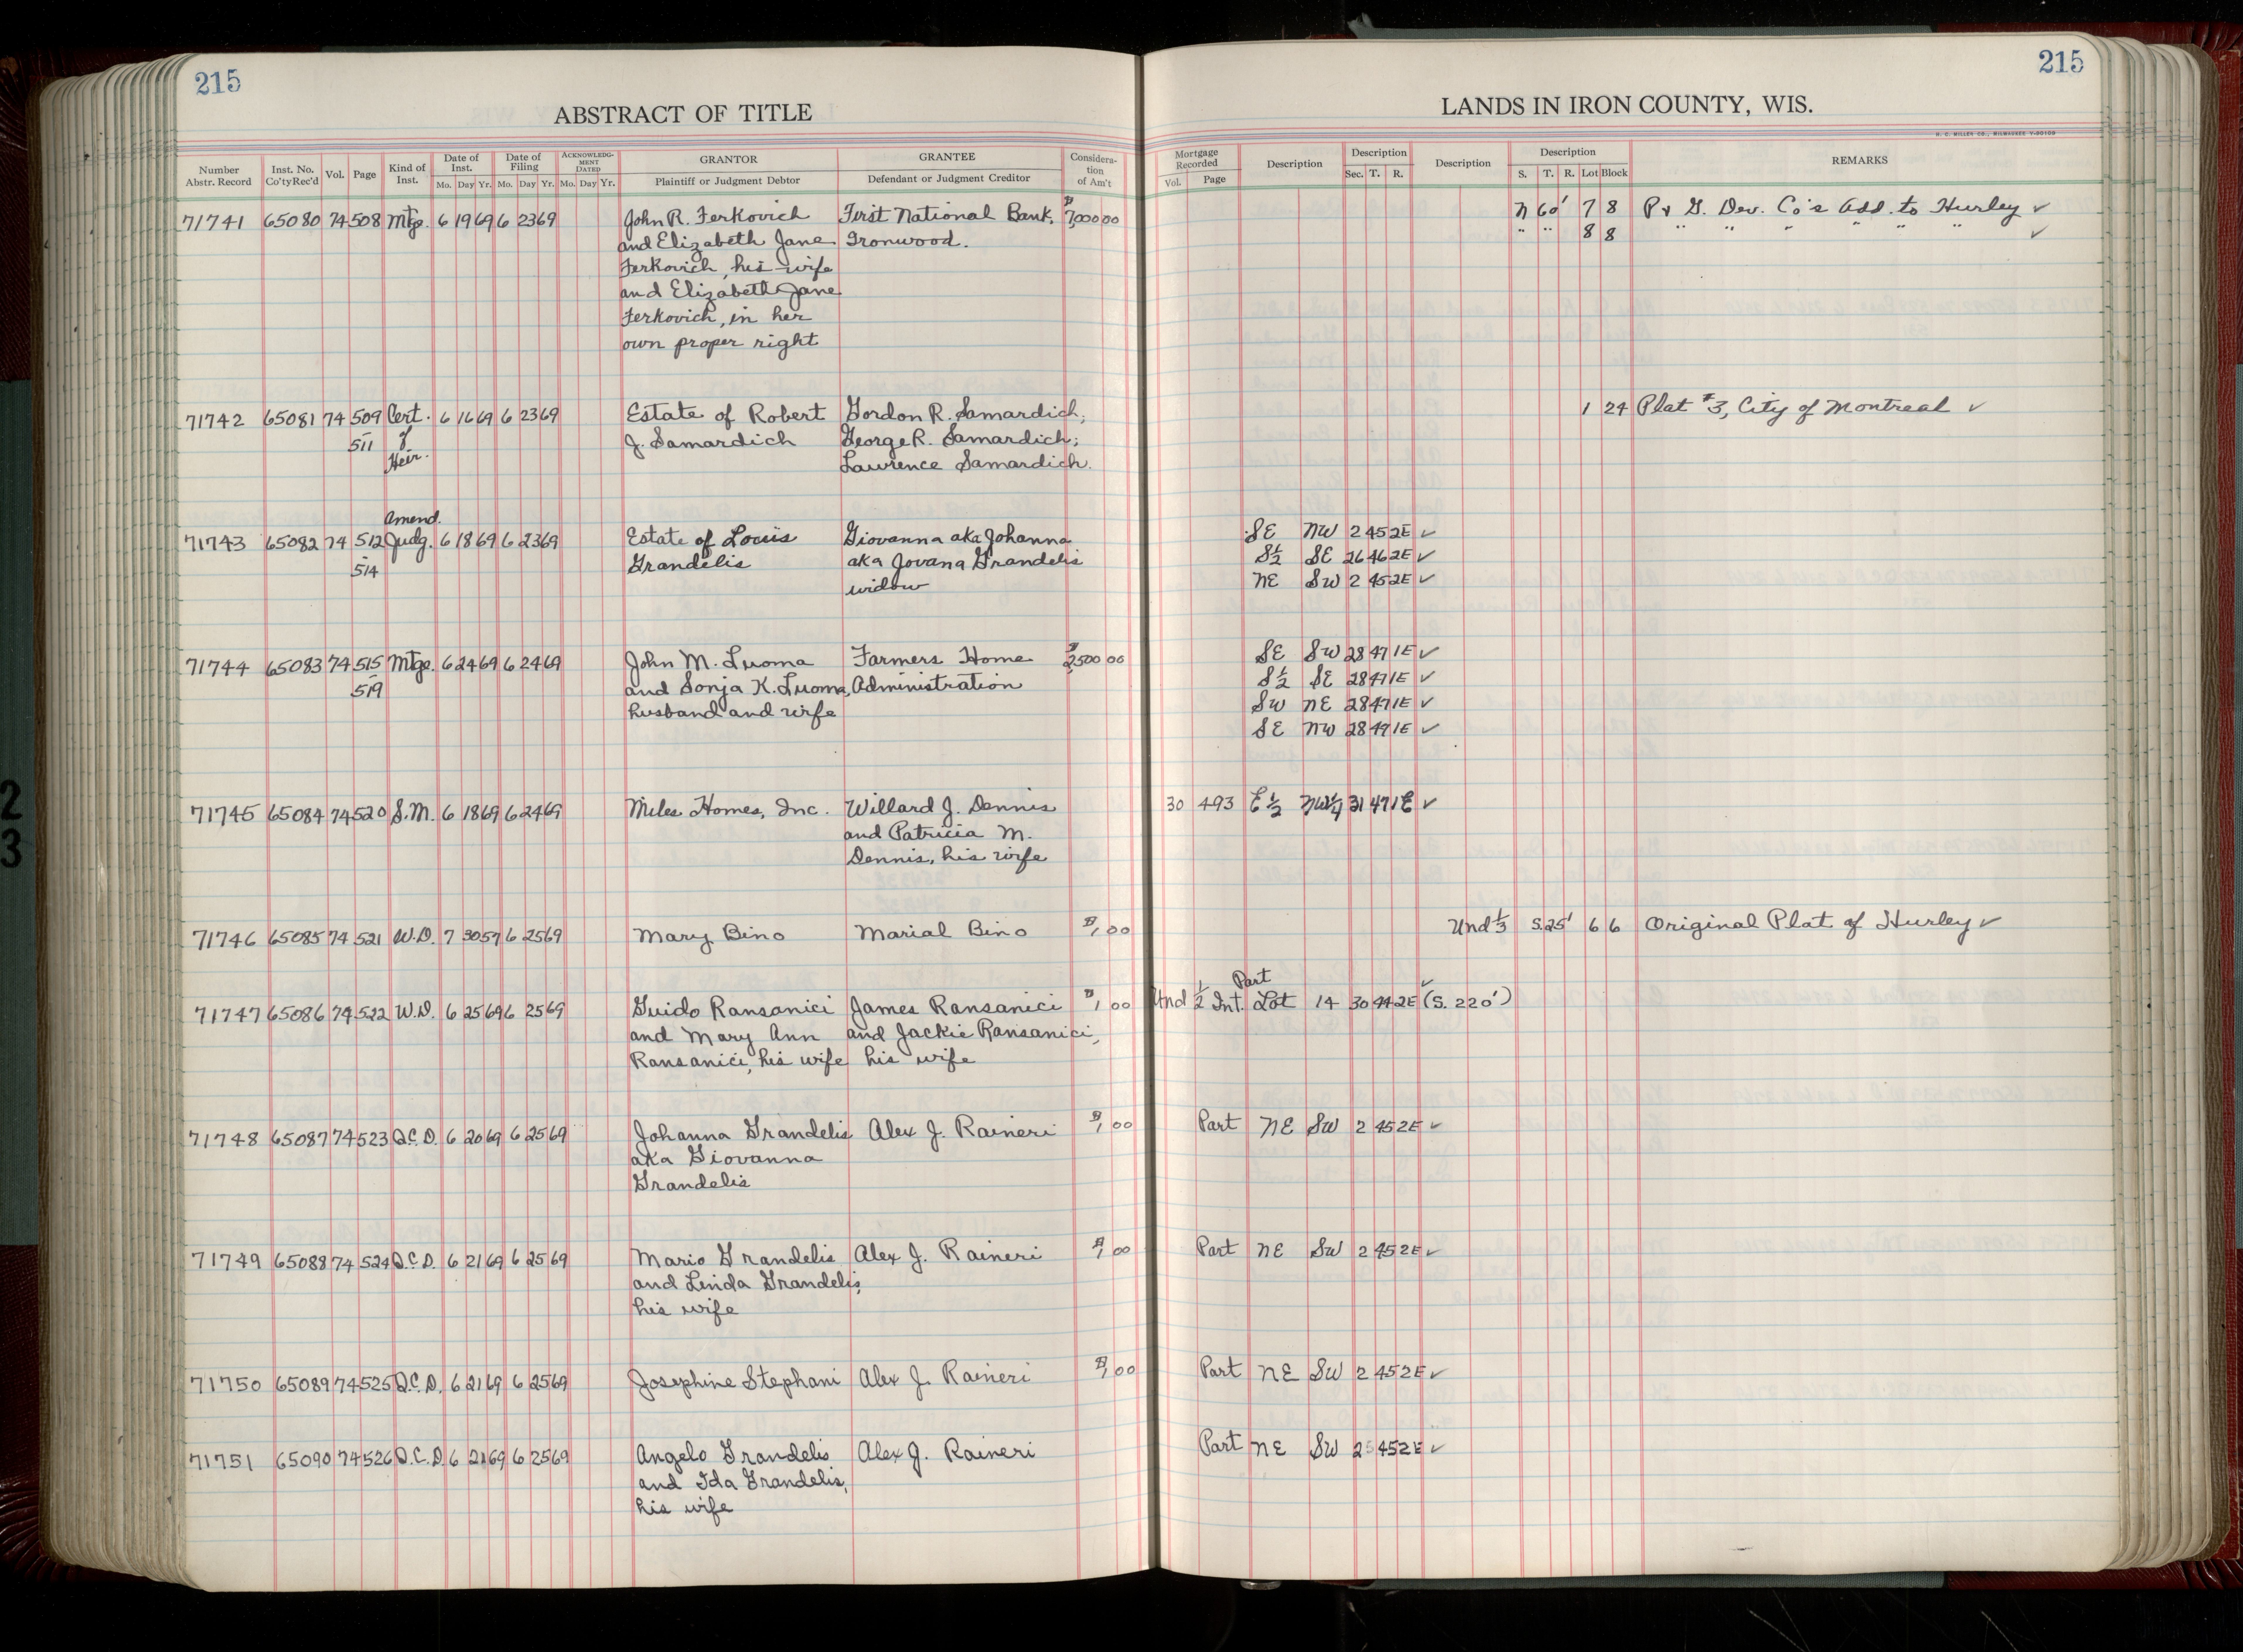 215
215
ABSTRACT OF TITLE
LANDS IN IRON COUNTY, WIS.
H. C. MILLER CO., MILWAUKEE V-90109
Number Abstr. Record | Inst. No. Co'ty Rec'd | Vol. | Page | Kind of Inst. | Date of Inst. Mo. Day Yr. | Date of Filing Mo. Day Yr. | ACKNOWLEDGMENT DATED Mo. Day Yr. | GRANTOR Plaintiff or Judgment Debtor | GRANTEE Defendant or Judgment Creditor | Consideration of Am't | Mortgage Recorded Vol. Page | Description | Description Sec. T. R. | Description | Description S. T. R. Lot Block | REMARKS
71741 65080 74 508 Mtge. 6 19 69 6 23 69 John R. Ferkovich First National Bank, $7,000 00 N 60' 7 8 P. & G. Dev. Co's Add. to Hurley ✓
and Elizabeth Jane Ironwood. " " 8 8 " " " " " " ✓
Ferkovich, his wife
and Elizabeth Jane
Ferkovich, in her
own proper right
71742 65081 74 509 Cert. 6 16 69 6 23 69 Estate of Robert Gordon R. Samardich; 1 24 Plat #3, City of Montreal ✓
- 511 of J. Samardich George R. Samardich;
Heir. Lawrence Samardich.
Amend.
71743 65082 74 512 Judg. 6 18 69 6 23 69 Estate of Louis Giovanna aka Johanna SE NW 2 45 2E ✓
- 514 Grandelis aka Jovana Grandelis S½ SE 26 46 2E ✓
widow NE SW 2 45 2E ✓
71744 65083 74 515 Mtge. 6 24 69 6 24 69 John M. Luoma Farmers Home $2,500 00 SE SW 28 47 1E ✓
- 519 and Sonja K. Luoma, Administration S½ SE 28 47 1E ✓
husband and wife SW NE 28 47 1E ✓
SE NW 28 47 1E ✓
71745 65084 74 520 S.M. 6 18 69 6 24 69 Miles Homes, Inc. Willard J. Dennis 30 493 E½ NW¼ 31 47 1E ✓
and Patricia M.
Dennis, his wife
71746 65085 74 521 W.D. 7 30 57 6 25 69 Mary Bino Marial Bino $1,00 Und ⅓ S.25' 6 6 Original Plat of Hurley ✓
Part ✓
71747 65086 74 522 W.D. 6 25 69 6 25 69 Guido Ransanici James Ransanici $1,00 Und ½ Int. Lot 14 30 44 2E (S. 220')
and Mary Ann and Jackie Ransanici,
Ransanici, his wife his wife
71748 65087 74 523 Q.C.D. 6 20 69 6 25 69 Johanna Grandelis Alex J. Raineri $1,00 Part NE SW 2 45 2E ✓
aka Giovanna
Grandelis
71749 65088 74 524 Q.C.D. 6 21 69 6 25 69 Mario Grandelis Alex J. Raineri $1,00 Part NE SW 2 45 2E ✓
and Linda Grandelis,
his wife
71750 65089 74 525 Q.C.D. 6 21 69 6 25 69 Josephine Stephani Alex J. Raineri $1,00 Part NE SW 2 45 2E ✓
71751 65090 74 526 Q.C.D. 6 21 69 6 25 69 Angelo Grandelis Alex J. Raineri Part NE SW 2 45 2E ✓
and Ida Grandelis,
his wife
2
3